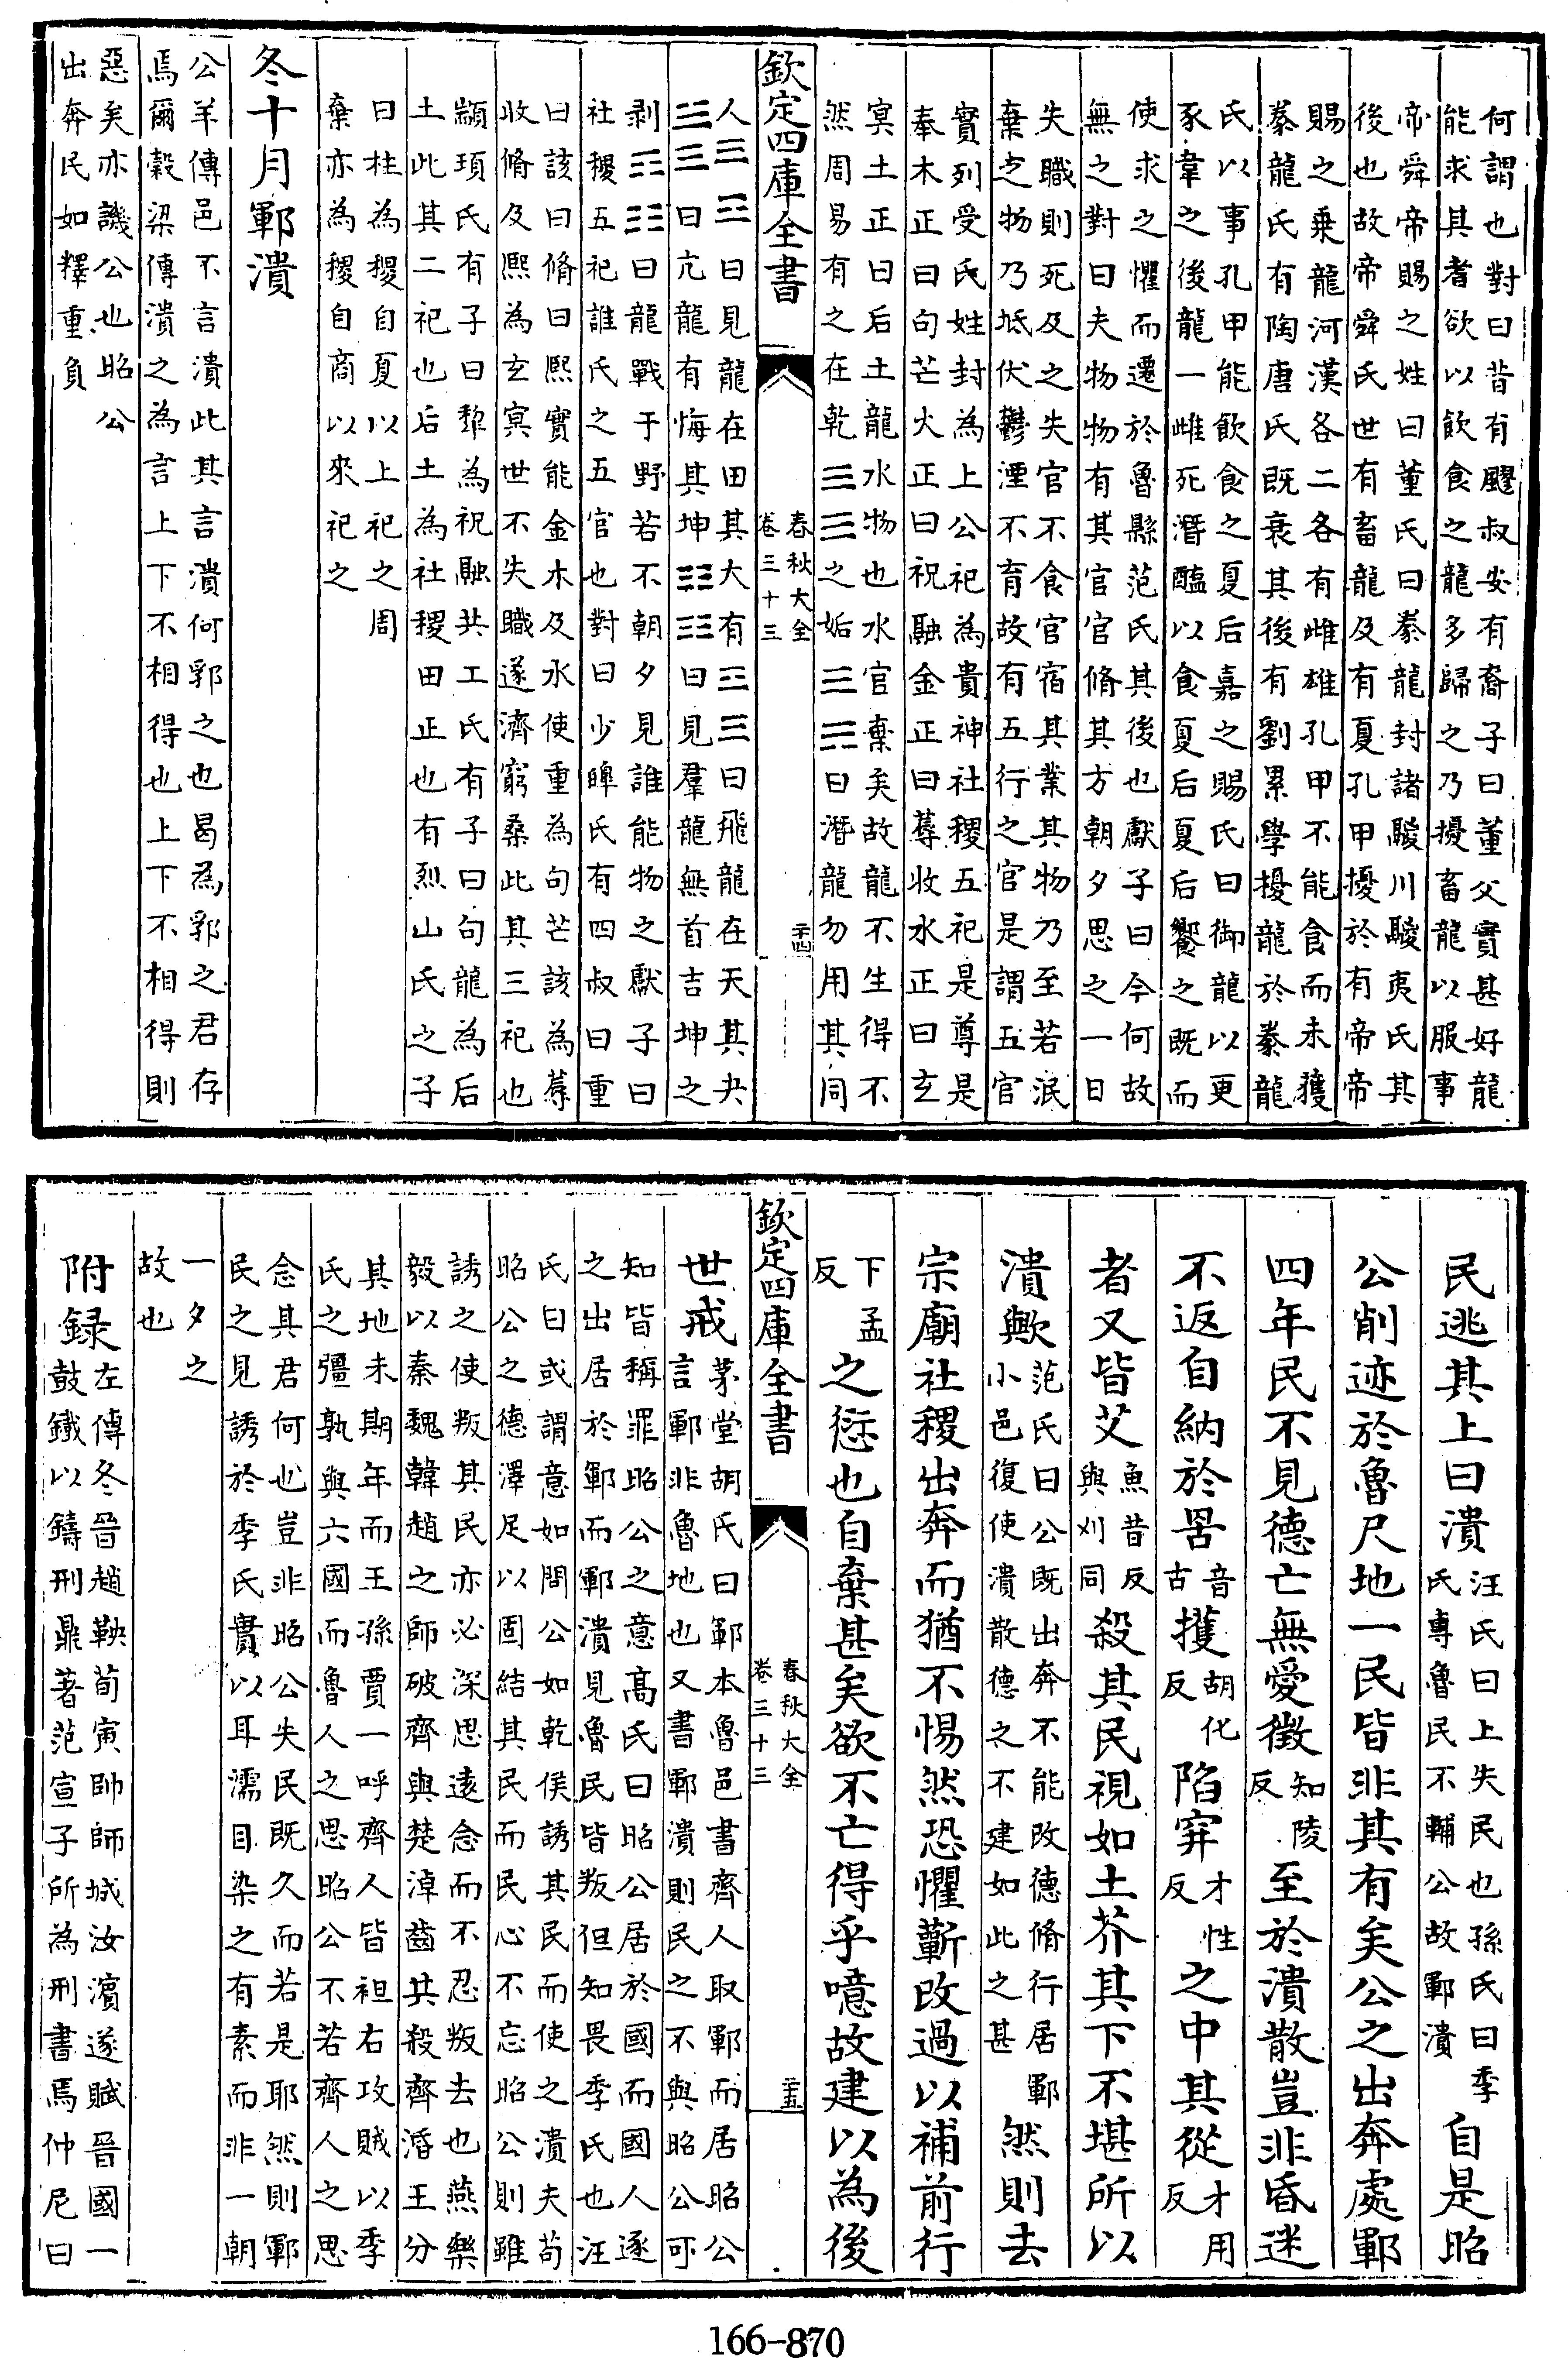 何謂也對曰昔有飂叔安有裔子曰董父實甚好龍
能求其耆欲以飲食之龍多歸之乃擾畜龍以服事
帝舜帝賜之姓曰董氏曰豢龍封諸鬷川鬷夷氏其
後也故帝舜氏世有畜龍及有夏孔甲擾於有帝帝
賜之乗龍河漢各二各有雌雄孔甲不能食而未獲
豢龍氏有陶唐氏既衰其後有劉累學擾龍於豢龍
氏以事孔甲能飲食之夏后嘉之賜氏曰御龍以更
豕韋之後龍一雌死潛醢以食夏后夏后饗之既而
使求之懼而遷於魯縣范氏其後也獻子曰今何故
無之對曰夫物物有其官官脩其方朝夕思之一日
失職則死及之失官不食官宿其業其物乃至若泯
棄之物乃坻伏鬱湮不育故有五行之官是謂五官
實列受氏姓封為上公祀為貴神社稷五祀是尊是
奉木正曰句芒火正曰祝融金正曰蓐收水正曰玄
冥土正曰后土龍水物也水官棄矣故龍不生得不
然周易有之在乾☰☰之姤☰☴曰潛龍勿用其同
欽定四庫全書
春秋大全
卷三十三
二十四
人☰☲曰見龍在田其大有☲☰曰飛龍在天其夬
☱☰曰亢龍有悔其坤☷☷曰見羣龍無首吉坤之
剥☶☷曰龍戰于野若不朝夕見誰能物之獻子曰
社稷五祀誰氏之五官也對曰少皥氏有四叔曰重
曰該曰脩曰熙實能金木及水使重為句芒該為蓐
收脩及熙為玄冥世不失職遂濟窮桑此其三祀也
顓頊氏有子曰犂為祝融共工氏有子曰句龍為后
土此其二祀也后土為社稷田正也有烈山氏之子
曰柱為稷自夏以上祀之周
棄亦為稷自商以來祀之
冬十月鄆潰
公羊傳邑不言潰此其言潰何郛之也曷為郛之君存
焉爾穀梁傳潰之為言上下不相得也上下不相得則
惡矣亦譏公也昭公
出奔民如釋重負
民逃其上曰潰
汪氏曰上失民也孫氏曰季
氏專魯民不輔公故鄆潰
自是昭
公削迹於魯尺地一民皆非其有矣公之出奔處鄆
四年民不見德亡無愛徴
知陵
反
至於潰散豈非昏迷
不返自納於罟
音
古
擭
胡化
反
陷穽
才性
反
之中其從
才用
反
者又皆艾
魚昔反
與刈同
殺其民視如土芥其下不堪所以
潰歟
范氏曰公既出奔不能改德脩行居鄆
小邑復使潰散德之不建如此之甚
然則去
宗廟社稷出奔而猶不惕然恐懼蘄改過以補前行
下孟
反
之愆也自棄甚矣欲不亡得乎噫故建以為後
欽定四庫全書
春秋大全
卷三十三
二十五
世戒
茅堂胡氏曰鄆本魯邑書齊人取鄆而居昭公
言鄆非魯地也又書鄆潰則民之不與昭公可
知皆稱罪昭公之意髙氏曰昭公居於國而國人逐
之出居於鄆而鄆潰見魯民皆叛但知畏季氏也汪
氏曰或謂意如間公如乾侯誘其民而使之潰夫苟
昭公之德澤足以固結其民而民心不忘昭公則雖
誘之使叛其民亦必深思遠念而不忍叛去也燕樂
毅以秦魏韓趙之師破齊與楚淖齒其殺齊湣王分
其地未期年而王孫賈一呼齊人皆袒右攻賊以季
氏之彊孰與六國而魯人之思昭公不若齊人之思
念其君何也豈非昭公失民既久而若是耶然則鄆
民之見誘於季氏實以耳濡目染之有素而非一朝
一夕之
故也
附録
左傳冬晉趙鞅荀寅帥師城汝濱遂賦晉國一
鼓鐵以鑄刑鼎著范宣子所為刑書焉仲尼曰
166-870